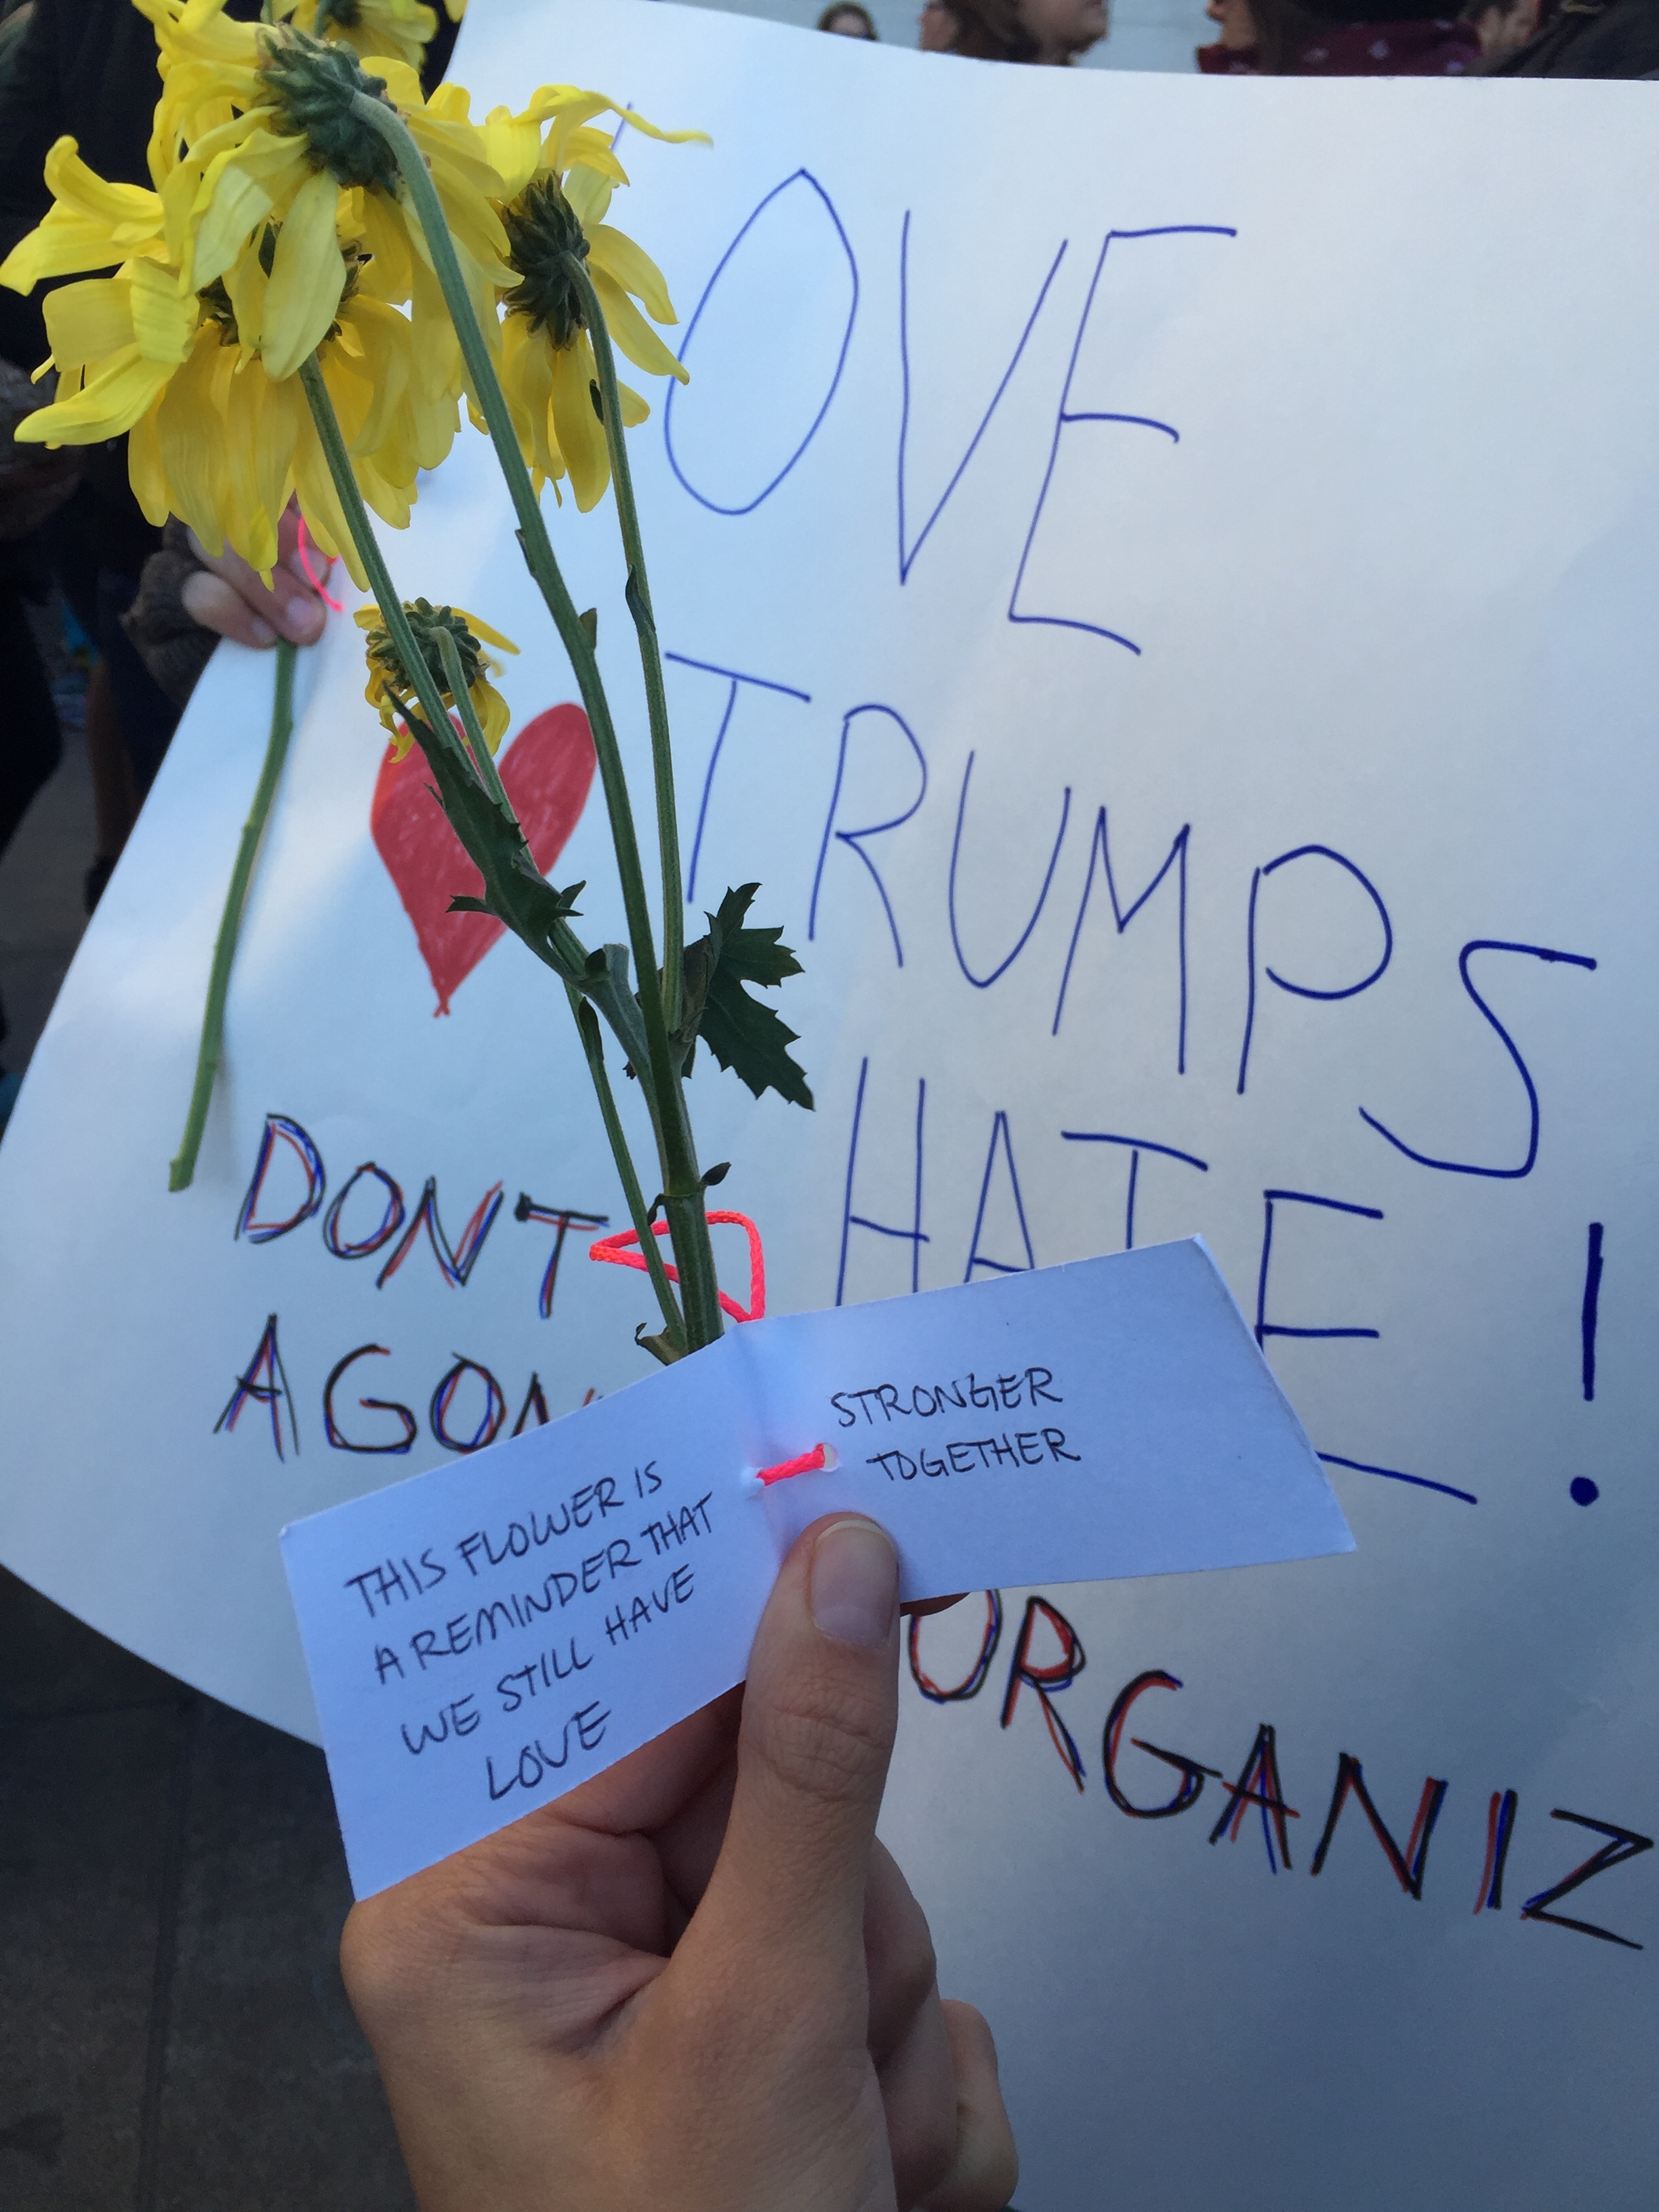 OVE
TRUMPS
HATE!
DONT
AGON
ORGANIZ
THIS FLOWER IS
A REMINDER THAT
WE STILL HAVE
LOVE
STRONGER
TOGETHER